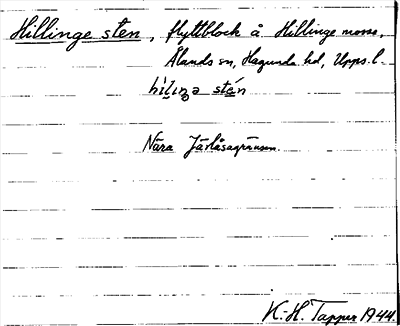 Hillinge sten, flyttblock å Hillinge mosse,
Ålands sn, Hagunda hd, Upps. l.
hìliŋə stén
Nära Järlåsagränsen.
K.-H. Tapper 1944.